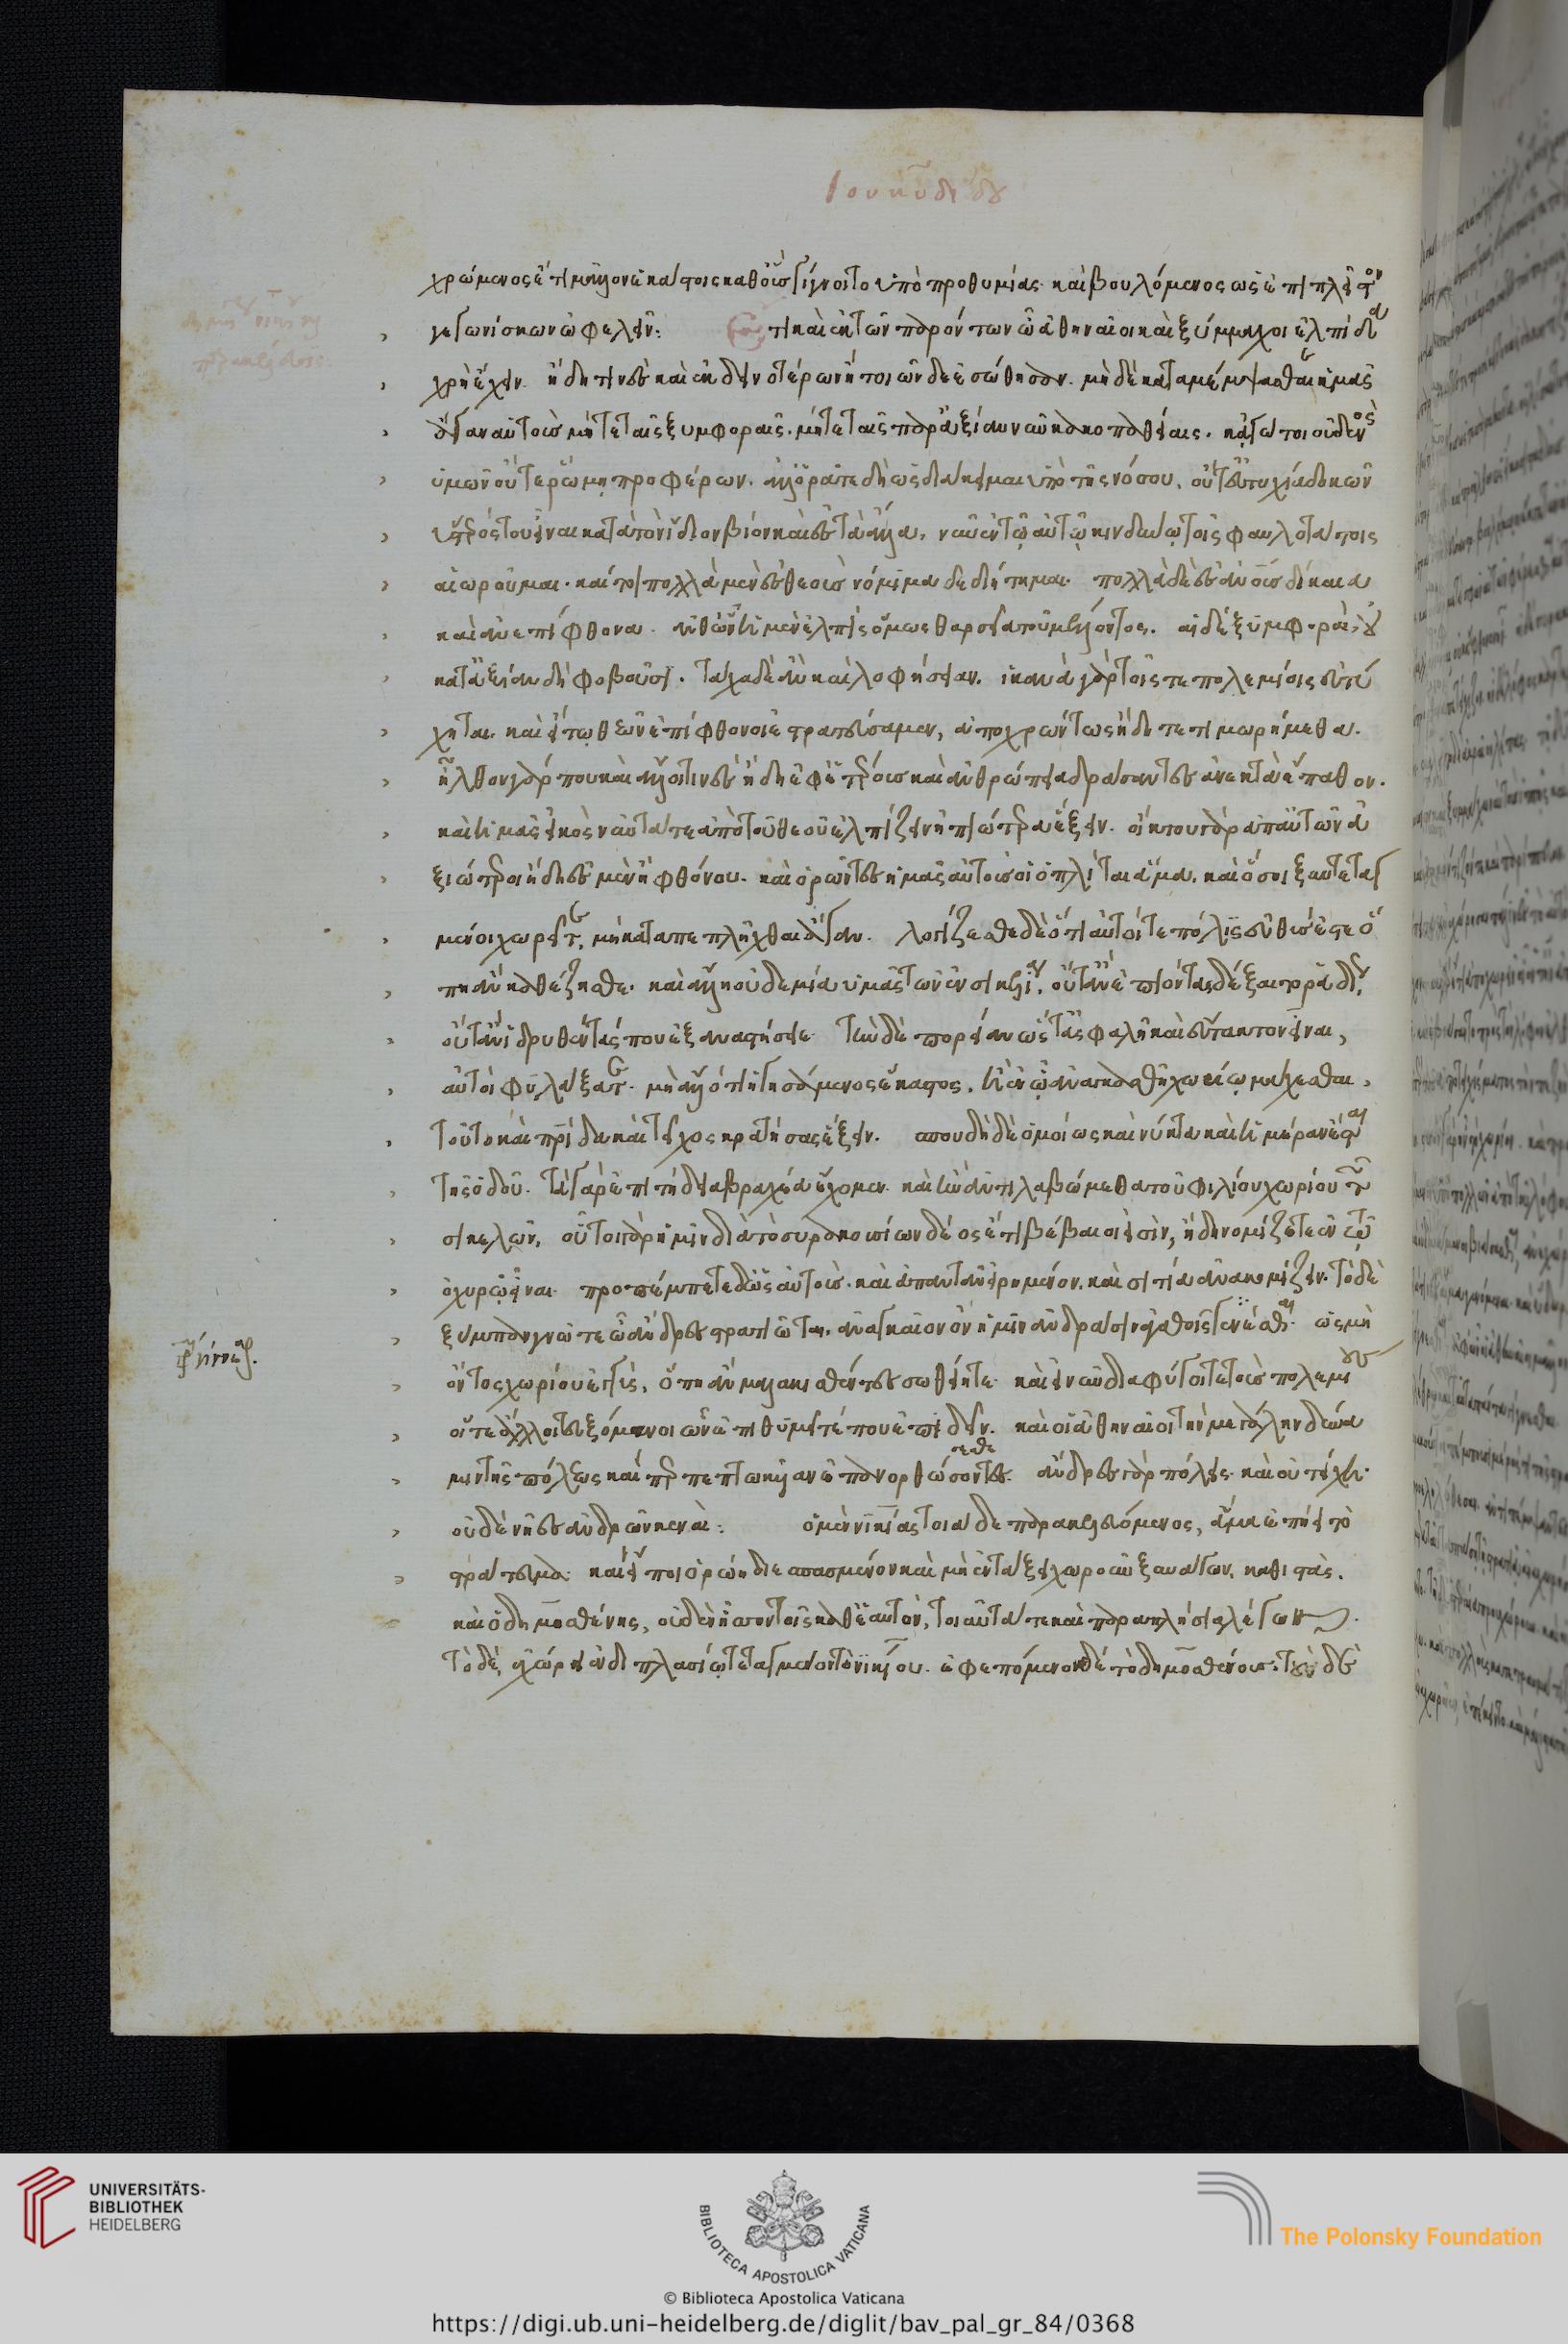 Θουκυδίδου
χρώμενος ἔτι μᾶλλον ἑκάστοις καθ' οὓς γίγνοιτο ὑπὸ προθυμίας καὶ βουλόμενος ὡς ἐπὶ πλεῖστον
γεγωνίσκων ὠφελεῖν: ἔτι καὶ ἐκ τῶν παρόντων ὦ ἀθηναῖοι καὶ ξύμμαχοι ἐλπίδα
χρὴ ἔχειν. ἤδη τινὲς καὶ ἐκ δεινοτέρων ἢ τοιῶνδε ἐσώθησαν. μὴ δὲ καταμέμφεσθαι ὑμᾶς
ἄγαν αὐτοὺς μήτε ταῖς ξυμφοραῖς. μήτε ταῖς παρὰ ἀξίαν νῦν κακοπαθείαις. κἀγώ τοι οὐδενὸς
ὑμῶν οὔτε ῥώμῃ προφέρων. ἀλλ' ὁρᾶτε δὴ ὡς διάκειμαι ὑπὸ τῆς νόσου. οὔτ' εὐτυχίᾳ δοκῶν
ὕστερός του εἶναι κατά τὸν ἴδιον βίον καὶ ἐς τὰ ἄλλα, νῦν ἐν τῷ αὐτῷ κινδύνῳ τοῖς φαυλοτάτοις
αἰωροῦμαι. καίτοι πολλὰ μὲν ἐς θεοὺς νόμιμα δεδιῄτημαι. πολλὰ δὲ ἐς ἀνους δίκαια
καὶ ἀνεπίφθονα. ἀνθ' ὧν ἡ μὲν ἐλπὶς ὅμως θαρσεῖα τοῦ μέλλοντος. αἱ δὲ ξυμφοραὶ οὐ
κατ' ἀξίαν δὴ φοβοῦσι. τάχα δὲ ἂν καὶ λοφήσειαν. ἱκανὰ γὰρ τοῖς τε πολεμίοις εὐτύ
χηται. καὶ εἴ τῳ θεῶν ἐπίφθονοι ἐστρατεύσαμεν, ἀποχρώντως ἤδη τετιμωρήμεθα.
ἦλθον γάρ που καὶ ἄλλοι τινὲς ἤδη ἐφ' ἑτέρους καὶ ἀνθρώπεια δράσαντες ἀνεκτὰ ἔπαθον.
καὶ ἡμᾶς εἰκὸς νῦν τά τε ἀπὸ τοῦ θεοῦ ἐλπίζειν ἠπιώτερα ἕξειν. οἴκτου γὰρ ἀπ' αὐτῶν ἀ
ξιώτεροι ἤδη ἐσμὲν ἢ φθόνου. καὶ ὁρῶντες ἡμᾶς αὐτοὺς οἱ ὁπλῖται ἅμα. καὶ ὅσοι ξυντεταγ
μένοι χωρεῖτε, μὴ καταπέπληχθαι ἄγαν. λογίζεσθε δὲ ὅτι αὐτοί τε πόλις εὐθύς ἐστε ὅ
πῃ ἂν καθέζησθε. καὶ ἄλλη οὐδεμία ὑμᾶς τῶν ἐν σικελίᾳ. οὔτ' ἂν ἐπιόντας δέξαιτο ῥᾳδίως,
οὔτ' ἂν ἱδρυθέντας που ἐξαναστήσειε. τὴν δὲ πορείαν ὥστ' ἀσφαλῆ καὶ εὔτακτον εἶναι,
αὐτοὶ φυλάξατε. μὴ ἄλλό τι ἡγησάμενος ἕκαστος. ἢ ἐν ᾧ ἂν ἀναγκασθῇ χωρίῳ μάχεσθαι,
τοῦτο καὶ πρίδα καὶ τεῖχος κρατήσας ἕξειν. σπουδὴ δὲ ὁμοίως καὶ νύκτα καὶ ἡμέραν ἔσται
τῆς ὁδοῦ. τὰ γὰρ ἐπιτήδεια βραχέα ἔχομεν. καὶ ἢν ἀντιλαβώμεθά του φιλίου χωρίου τῶν
σικελῶν, οὗτοι γὰρ ἡμῖν διὰ τὸ συρακοσίων δέος ἔτι βέβαιοι εἰσὶν, ἤδη νομίζετε ἐν τῷ
ὀχυρῷ εἶναι. προπέμπετε δ' ὡς αὐτούς. καὶ ἀπαντᾶν εἰρημένον. καὶ σιτία ἂν κομίζειν. τὸ δὲ
ξύμπαν γνῶτε ὦ ἄνδρες στρατιῶται, ἀναγκαῖον ὂν ὑμῖν ἀνδράσιν ἀγαθοῖς γενέσθαι. ὡς μὴ
ὄντος χωρίου ἐγγύς, ὅπῃ ἂν μαλακισθέντες σωθείητε. καὶ εἰ νῦν διαφύγοιτε τοὺς πολεμίους
οἵ τε ἄλλοι τευξόμενοι ὧν ἐπιθυμεῖτέ που ἐπιδεῖν. καὶ οἱ ἀθηναῖοι τὴν μεγάλην δύνα
μιν τῆς πόλεως καίπερ πεπτωκυῖαν ἐπανορθώσοντες. ἄνδρες γὰρ πόλις. καὶ οὐ τείχη.
οὐδὲ νῆες ἀνδρῶν κεναὶ: ὁ μὲν νικίας τοιάδε παρακελευόμενος, ἅμα ἐπῄει τὸ
στράτευμα. καὶ εἴ πῃ ὁρῴη διεσπασμένον καὶ μὴ ἐν τάξει χωροῦν ξυνάγων. καθιστάς.
καὶ ὁ δημοσθένης, οὐδὲν ἧσσον τοῖς καθ' ἑαυτόν, τοιαῦτά τε καὶ παραπλήσια λέγων.
τὸ δὲ, ἐχώρει ἐν διπλασίῳ τεταγμένον τὸ νικίου. ἐφεπόμενον δὲ τὸ δημοσθένους. τοὺς δὲ
UNIVERSITÄTS-
BIBLIOTHEK
HEIDELBERG
BIBLIOTECA APOSTOLICA VATICANA
The Polonsky Foundation
© Biblioteca Apostolica Vaticana
https://digi.ub.uni-heidelberg.de/diglit/bav_pal_gr_84/0368